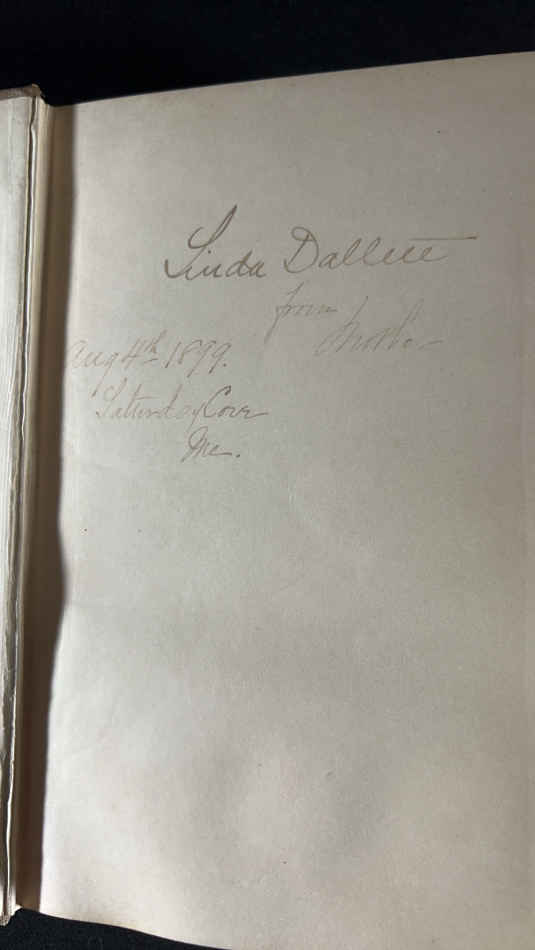 Linda Dallett
from
Aug 4th 1899.
Saturday Cove
Me.